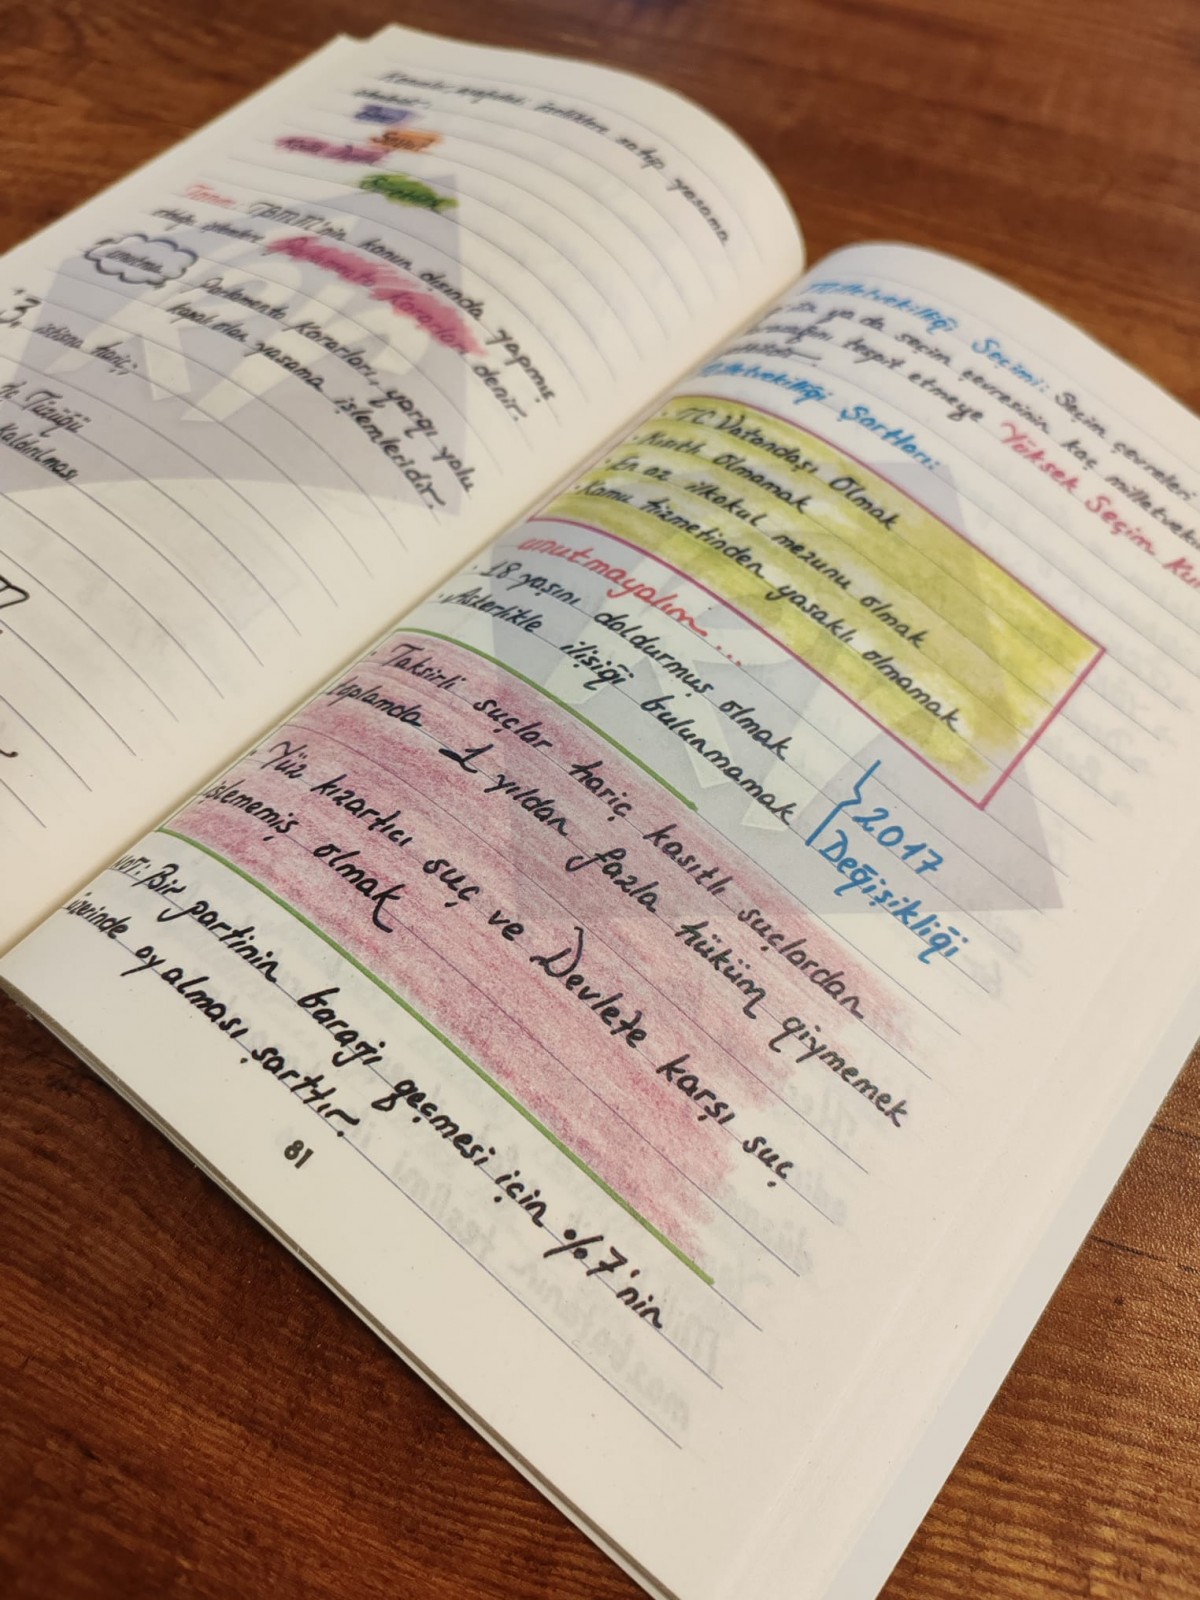 Kanunlar
yasama
Tanım: TBMM'nin kanun dışında yapmış
olduğu işlemlere Parlamento Kararları denir.
unutma
Parlamento kararları, yargı yolu
kapalı olan yasama işlemleridir.
*3 istisna hariç;
İç Tüzüğü
Kaldırılması
Milletvekilliği Seçimi: Seçim çevreleri
ya da seçim çevresinin kaç milletvek
tespit etmeye Yüksek Seçim Ku
Milletvekilliği Şartları:
· TC Vatandaşı Olmak
· Kısıtlı Olmamak
· En az ilkokul mezunu olmak
· Kamu hizmetinden yasaklı olmamak
unutmayalım...
· 18 yaşını doldurmuş olmak
· Askerlikle ilişiği bulunmamak
2017
Değişikliği
· Taksirli suçlar hariç kasıtlı suçlardan
toplamda 1 yıldan fazla hüküm giymemek
· Yüz kızartıcı suç ve Devlete karşı suç
işlememiş olmak
NOT: Bir partinin barajı geçmesi için %7'nin
üzerinde oy alması şarttır.
81